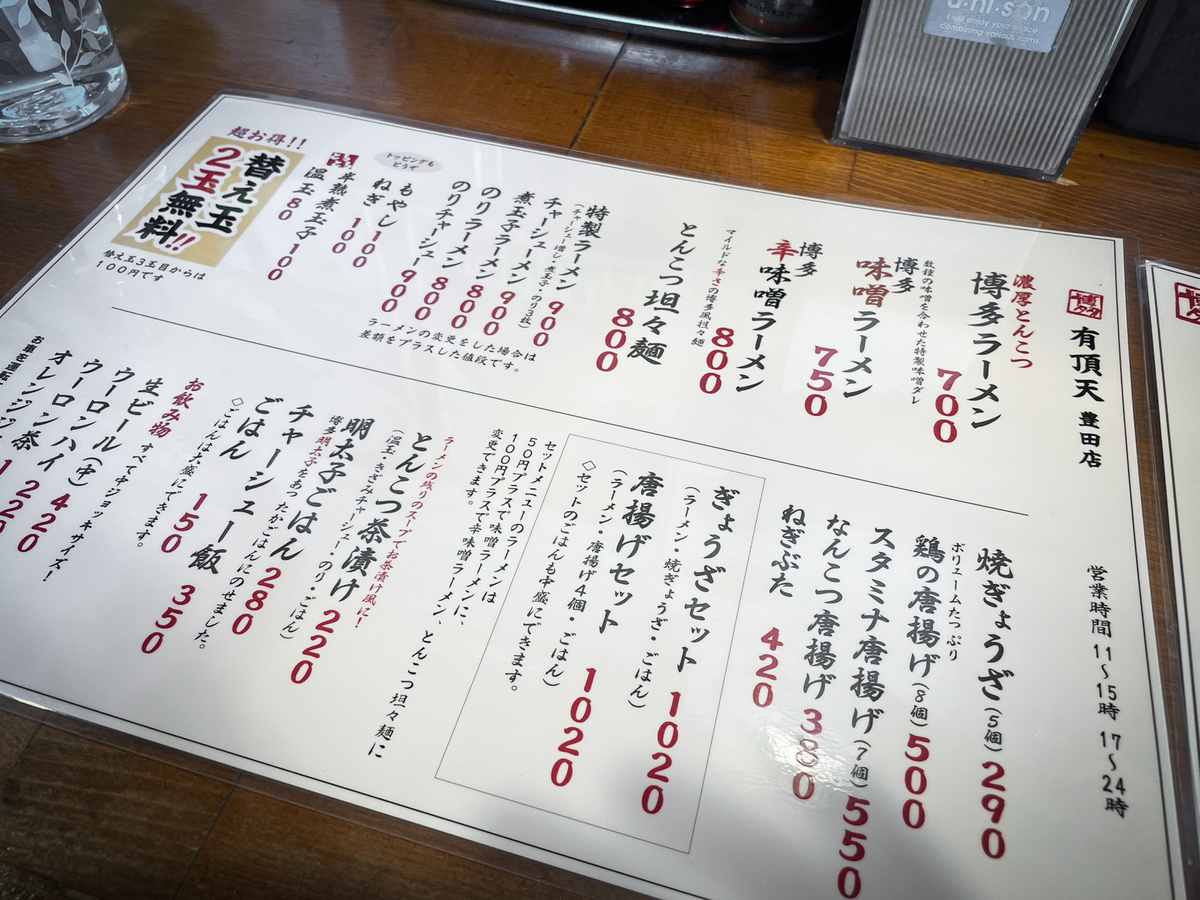 a·ni·son
I will enjoy your place
combining various items.
博多
有頂天 豊田店
営業時間 11～15時 17～24時
濃厚とんこつ
博多ラーメン 700
数種の味噌を合わせた特製味噌ダレ
博多
味噌ラーメン 750
博多
辛味噌ラーメン 800
マイルドな辛さの博多風担々麺
とんこつ坦々麺 800
特製ラーメン 900
(チャーシュー増し・煮玉子・のり3枚)
チャーシューメン 900
煮玉子ラーメン 800
のりラーメン 800
のりチャーシュー 900
ラーメンの変更をした場合は
差額をプラスした値段です。
トッピングも
どうぞ
もやし 100
ねぎ 100
半熟煮玉子 100
温玉 80
超お得!!
替え玉
2玉無料!!
替え玉3玉目からは
100円です
焼ぎょうざ(5個) 290
ボリュームたっぷり
鶏の唐揚げ(8個) 500
スタミナ唐揚げ(7個) 550
なんこつ唐揚げ 380
ねぎぶた 420
ぎょうざセット 1020
(ラーメン・焼ぎょうざ・ごはん)
唐揚げセット 1020
(ラーメン・唐揚げ4個・ごはん)
◇セットのごはんも中盛にできます。
セットメニューのラーメンは
50円プラスで味噌ラーメンに、
100円プラスで辛味噌ラーメン、とんこつ坦々麺に
変更できます。
ラーメンの残りのスープでお茶漬け風に!
とんこつ茶漬け 220
(温玉・きざみチャーシュー・のり・ごはん)
明太子ごはん 280
博多明太子をあったかごはんにのせました。
チャーシュー飯 350
ごはん 150
◇ごはんは大盛にできます。
お飲み物 すべて中ジョッキサイズ!
生ビール(中) 420
ウーロンハイ
ウーロン茶
オレンジジ
お車を運転